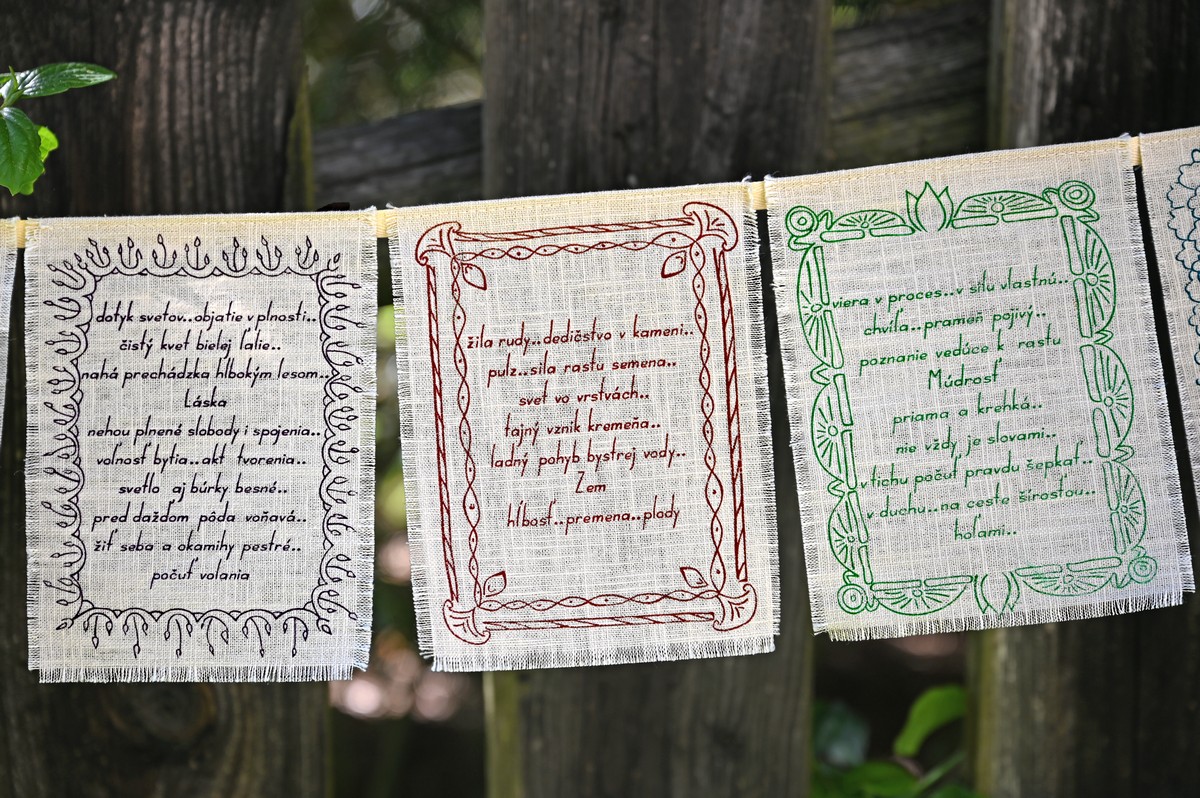 dotyk svetov..objatie v plnosti..
čistý kvet bielej ľalie..
nahá prechádzka hlbokým lesom..
Láska
nehou plnené slobody i spojenia..
voľnosť bytia..akt tvorenia..
svetlo aj búrky besné..
pred dažďom pôda voňavá..
žiť seba a okamihy pestré..
počuť volania
žila rudy..dedičstvo v kameni..
pulz..sila rastu semena..
svet vo vrstvách..
tajný vznik kremeňa..
ladný pohyb bystrej vody..
Zem
hĺbosť..premena..plody
viera v proces..v silu vlastnú..
chvíľa..prameň pojivý..
poznanie vedúce k rastu
Múdrosť
priama a krehká..
nie vždy je slovami..
v tichu počuť pravdu šepkať..
v duchu..na ceste šírosťou..
hoľami..